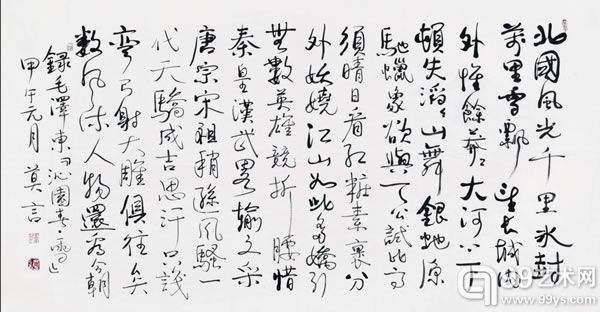 北國風光千里冰封
萬里雪飄望長城內
外惟餘莽々大河上下
頓失滔々山舞銀蛇原
馳蠟象欲與天公試比高
須晴日看紅粧素裹分
外妖嬈江山如此多嬌引
無數英雄競折腰惜
秦皇漢武略輸文采
唐宗宋祖稍遜風騷一
代天驕成吉思汗只識
彎弓射大雕俱往矣
數風流人物還看今朝
錄毛澤東詞沁園春·雪
甲午元月 莫言
99艺术网
www.99ys.com